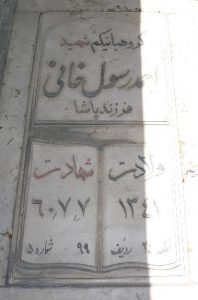 گروهبانیکم شهید
احمد رسول خانی
فرزند پاشا
ولادت شهادت
۱۳۴۱ ۶۰٫۷٫۷
قطعه ۲ ردیف ۹۹ شماره ۵